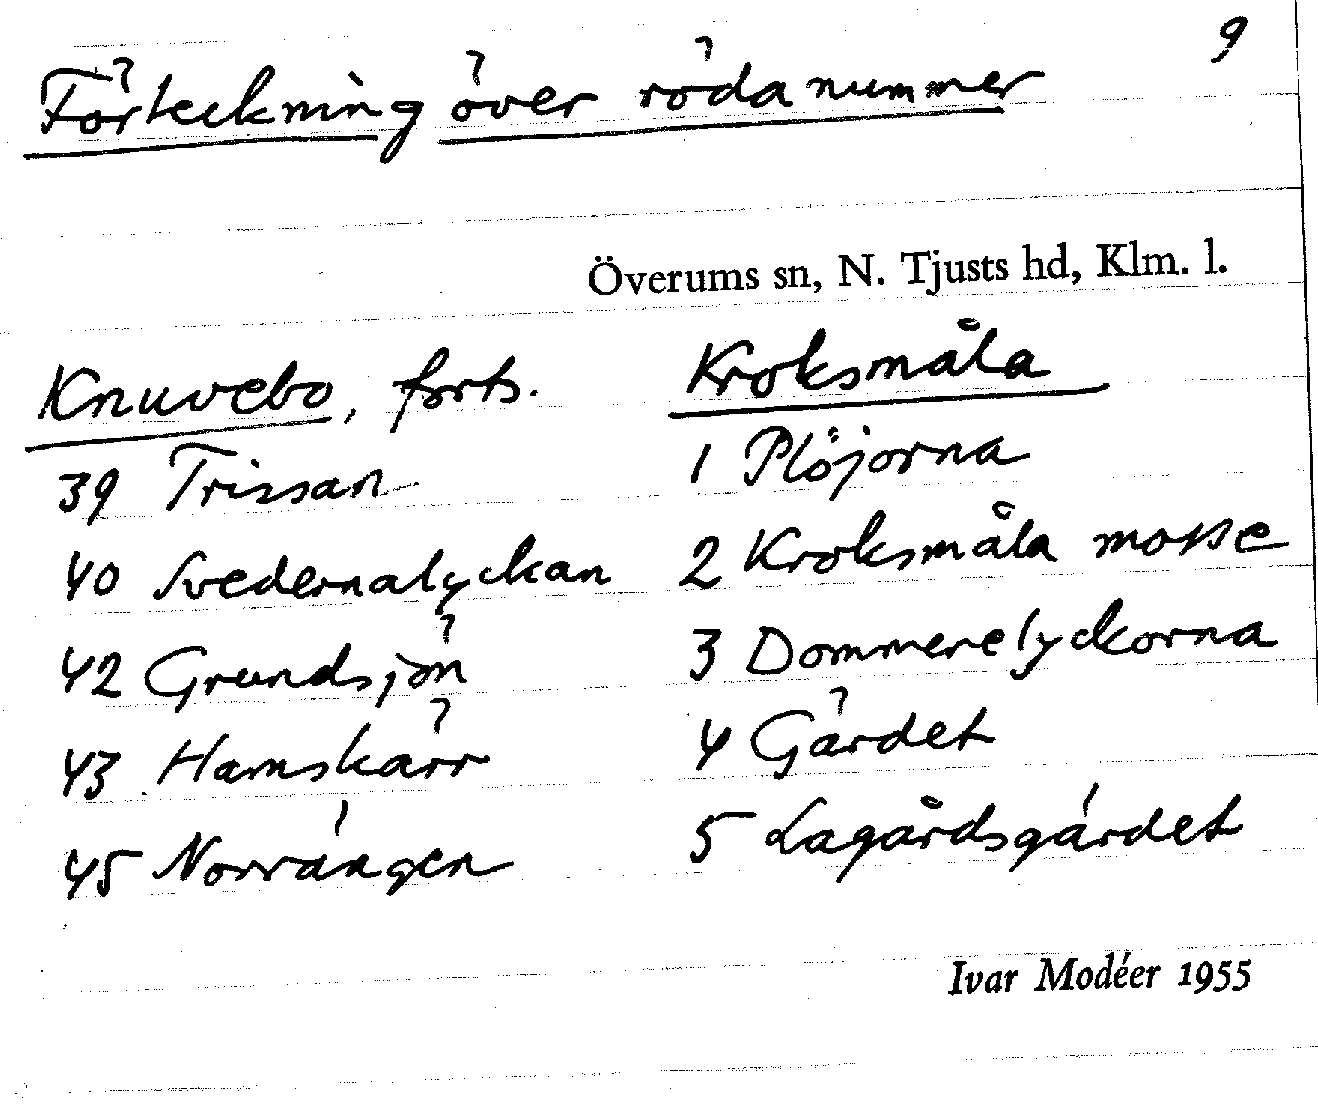 9
Förteckning över röda nummer
Överums sn, N. Tjusts hd, Klm. l.
Knuvebo, forts.
39 Trissan
40 Svedernalyckan
42 Grundsjön
43 Hamskärr
45 Norrängen
Kroksmåla
1 Plöjorna
2 Kroksmåla mosse
3 Dommerelyckorna
4 Gärdet
5 Lagårdsgärdet
Ivar Modéer 1955